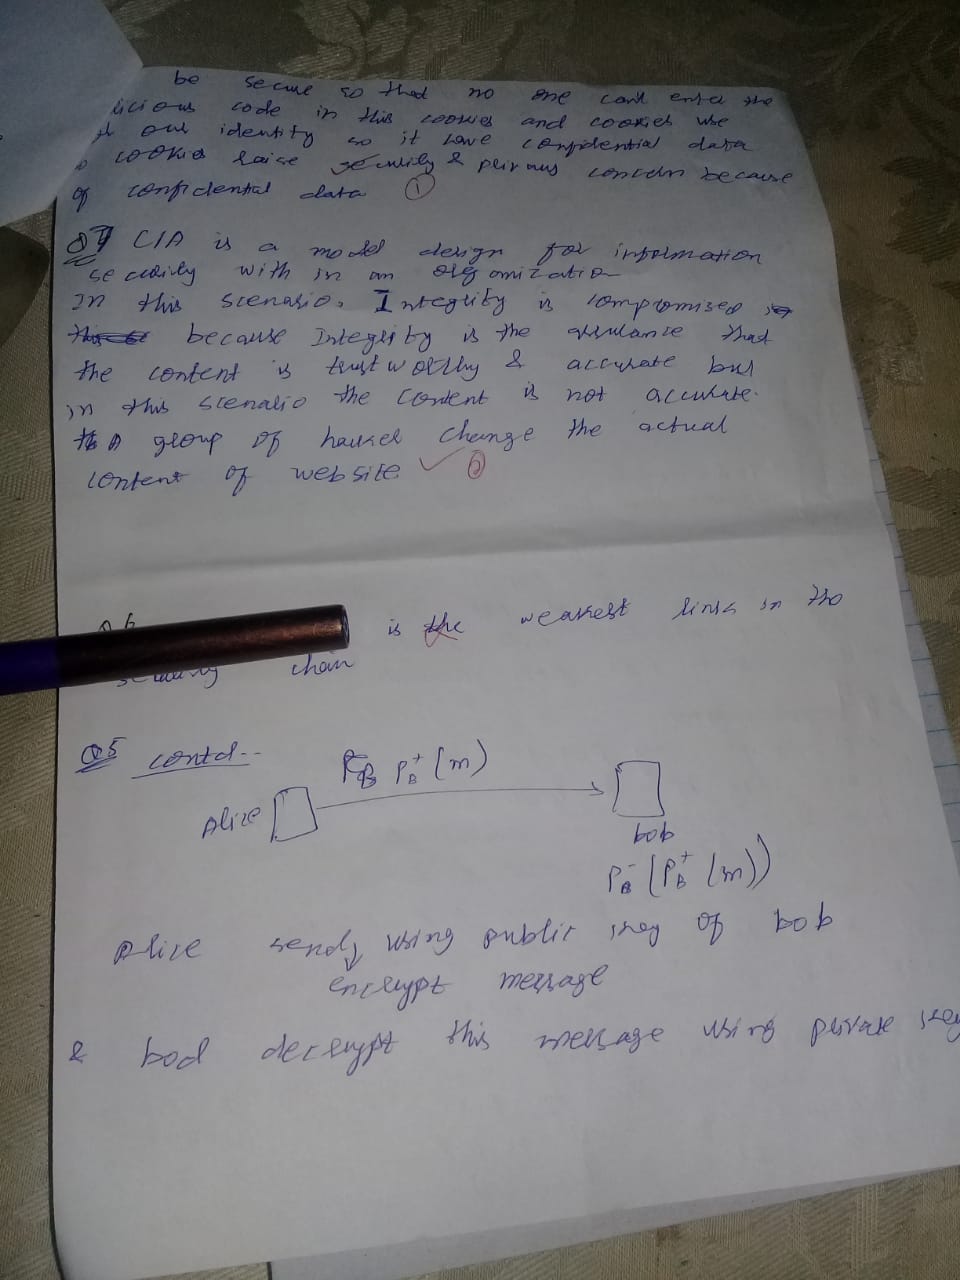 be secure so that no one can't enter the
licious code in this cookies and cookies use
our identity so it have confidential data
cookies raise security & privacy concern because
of confidential data 1
Q7 CIA is a model design for information
security with in an organization
In this scenario. Integrity is compromised
because Integrity is the assurance that
the content is trustworthy & accurate but
in this scenario the content is not accurate.
A group of hacker change the actual
content of website
is the weakest link in the
security chain
Q5 contd--
P_B^+(m)
Alice
bob
P_B^-(P_B^+(m))
Alice sends using public key of bob
encrypt message
& bob decrypt this message using private key